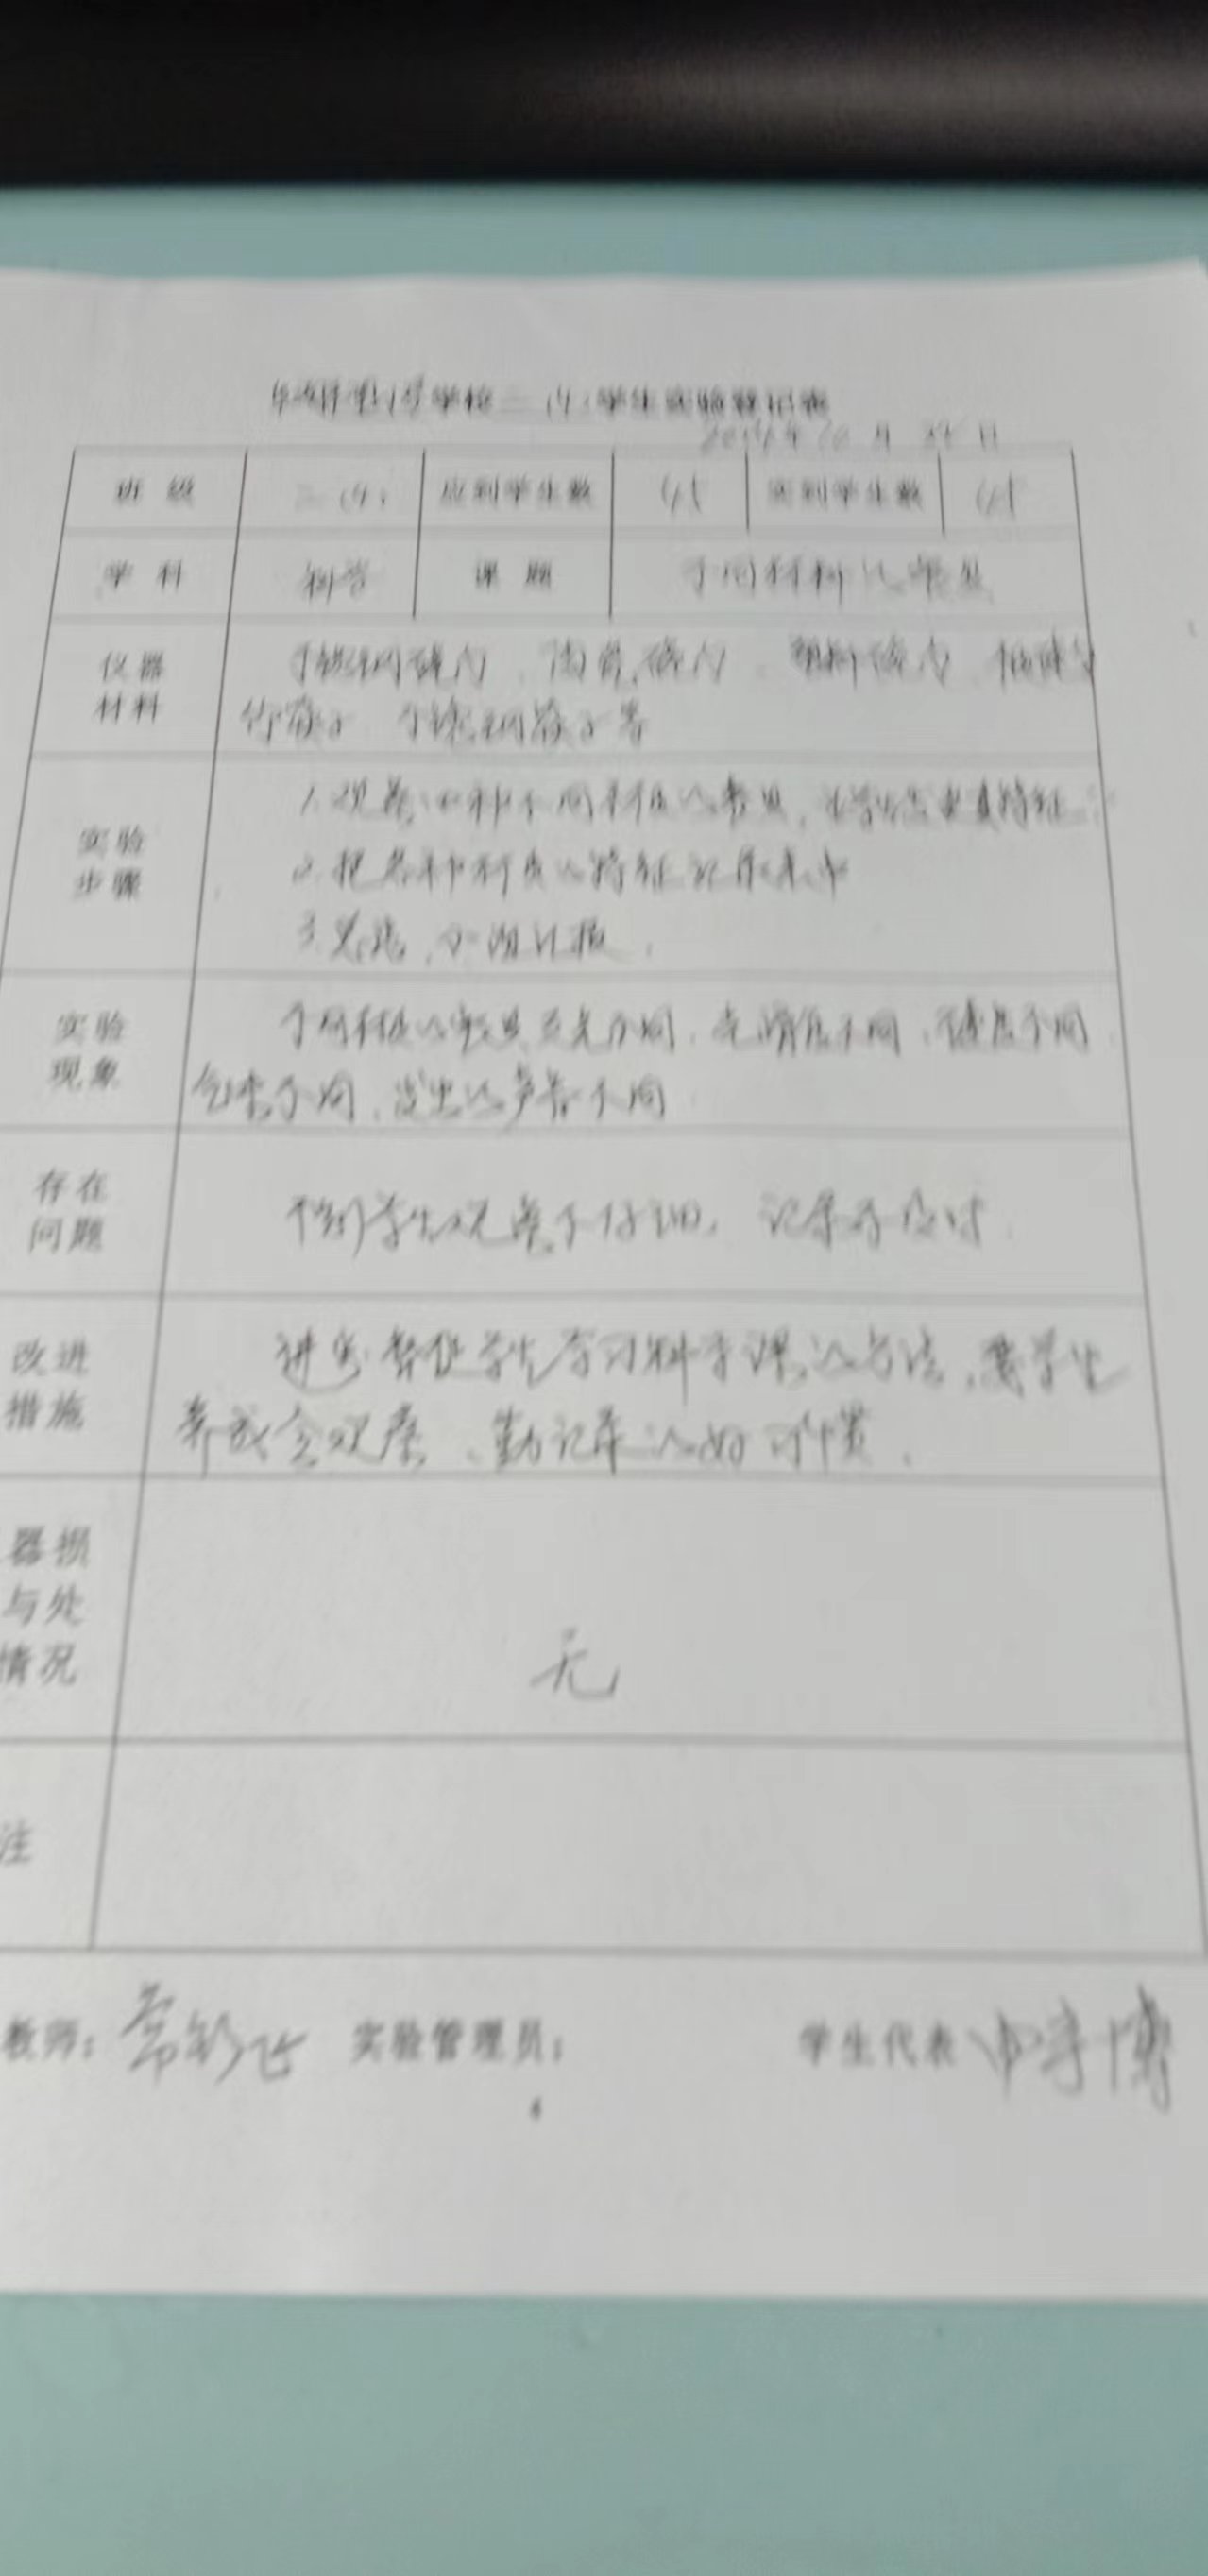 学校二(4)学生实验登记表
年10月 日
班级 二(4) 应到学生数 45 实到学生数 45
学科 科学 课题 不同材料的餐具
仪器 不锈钢碗勺、陶瓷碗勺、塑料碗勺、
材料 竹筷子 不锈钢筷子等
1.观察四种不同材质的餐具,
实验 2.把各种材质的特征记录表中
步骤
3.总结,小组汇报.
实验 不同材质的餐具反光不同,光滑度不同,硬度不同
现象 不同,发出的声音不同
存在 部分学生观察不仔细,记录不及时.
问题
改进 进步督促学生学习科学课的方法,要学生
措施 养成会观察、勤记录的好习惯.
器损
与处
情况 无
注
教师: 实验管理员: 学生代表